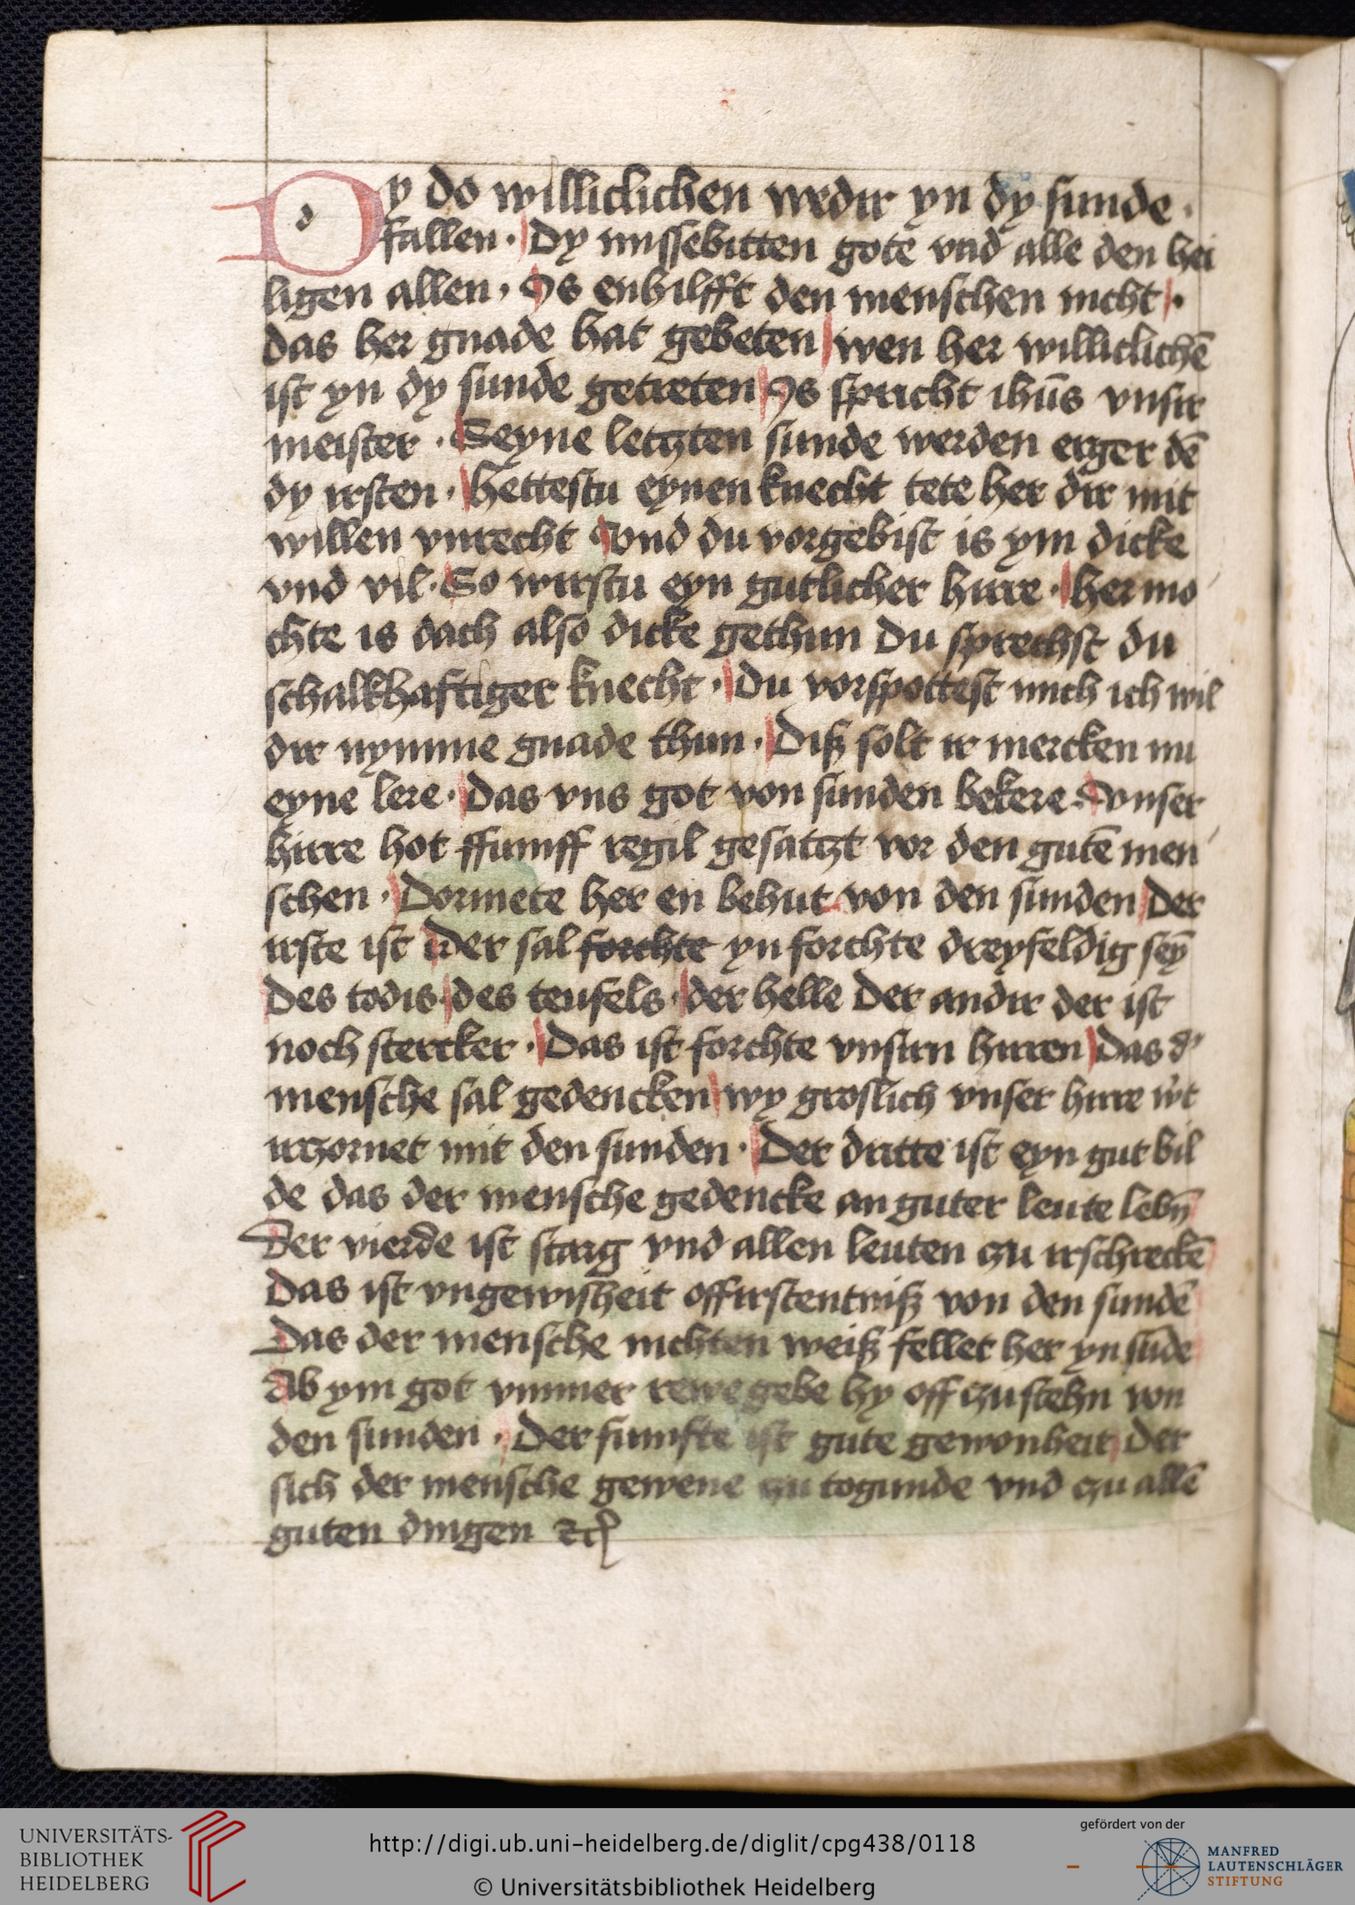 Dy do williclichen wedir yn dy sunde ·
fallen · Dy missebitten gote vnd alle den hei
ligen allen · Is enhilfft den menschen nicht ·
das her gnade hat gebeten wen her williclichē
ist yn dy sunde getreten Is spricht ihūs vnsir
meister · Seyne letzten sunde werden erger dē
dy irsten · Hettestu eynen knecht tete her dir mit
willen vnrecht Vnd du vorgebist is ym dicke
vnd vil · So wirstu eyn gutlicher hirre · her mo
chte is dach also dicke gethun Du sprechst du
schalkhaftiger knecht · Du vorspottest mich ich wil
dir nymme gnade thun · Diß solt ir mercken mi
eyne lere · Das vns got von sunden bekere · Vnser
hirre hot ffumff regil gesatzt vor den gutē men
schen · Dormete her en behut von den sunden Der
irste ist Der sal forchte yn forchte dreyfeldig seȳ
Des todis des teufels · der helle Der andir der ist
noch stercker · Das ist forchte vnsirn hirren Das d'
mensche sal gedencken wy groslich vnser hirre w't
irzornet mit den sunden · Der dritte ist eyn gut bil
de das der mensche gedencke an guter leute lebn̄
Der vierde ist starg vnd allen leuten czu irschreckē
Das ist vngewisheit offirstentniß von den sundē
Das der mensche nichten weiß fellet her yn sūde
Ab ym got vmmer rewe gebe hy off czu stehn von
den sunden · Der fumfte ist gute gewonheit Der
sich der mensche gewene zu togunde vnd czu allē
guten dingen etc
UNIVERSITÄTS-
BIBLIOTHEK
HEIDELBERG
http://digi.ub.uni-heidelberg.de/diglit/cpg438/0118
© Universitätsbibliothek Heidelberg
gefördert von der
MANFRED
LAUTENSCHLÄGER
STIFTUNG